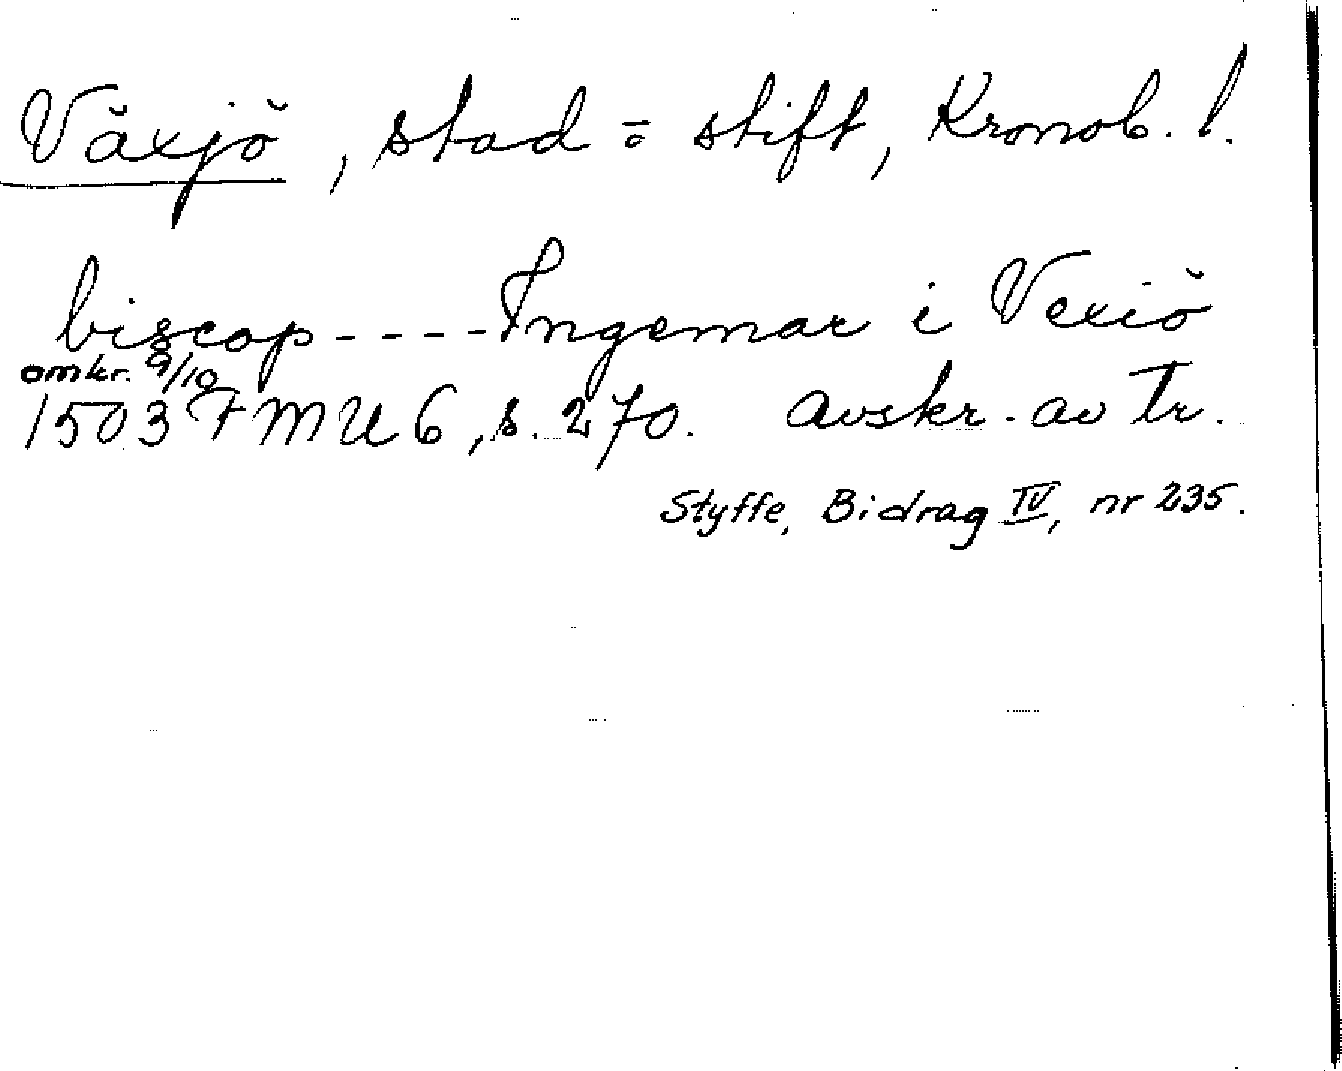 Växjö, stad o. stift, Kronob. l.
biscop ---- Ingemar i Vexiö
omkr. 9/10
1503 FMU 6, s. 270. Avskr. av Tr.
Styffe, Bidrag IV, nr 235.